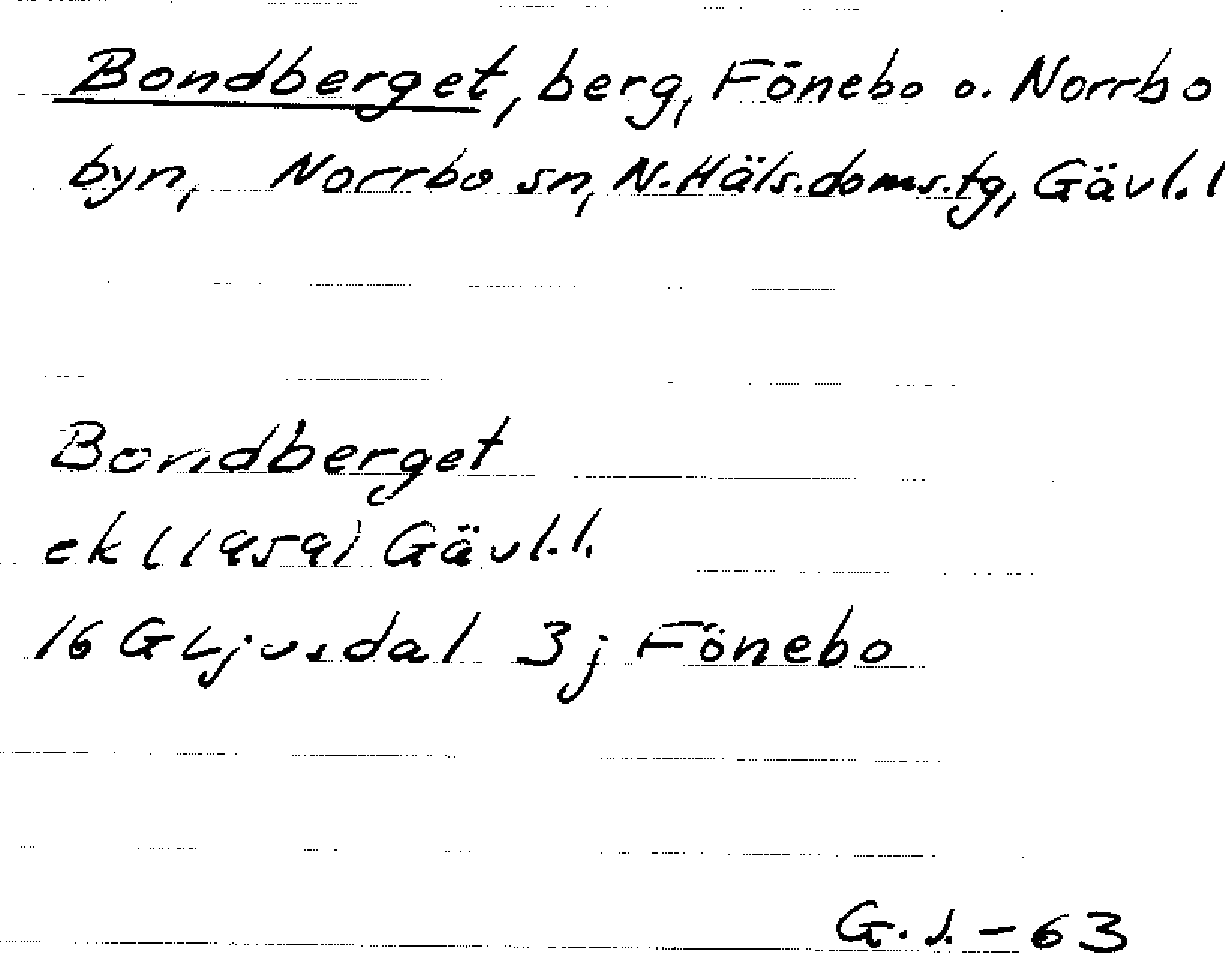 Bondberget, berg, Fönebo o. Norrbo
byn, Norrbo sn, N.Häls.doms.tg, Gävl.l
Bondberget
ek (1959) Gävl.l.
16 G Ljusdal 3j Fönebo
G.S.-63